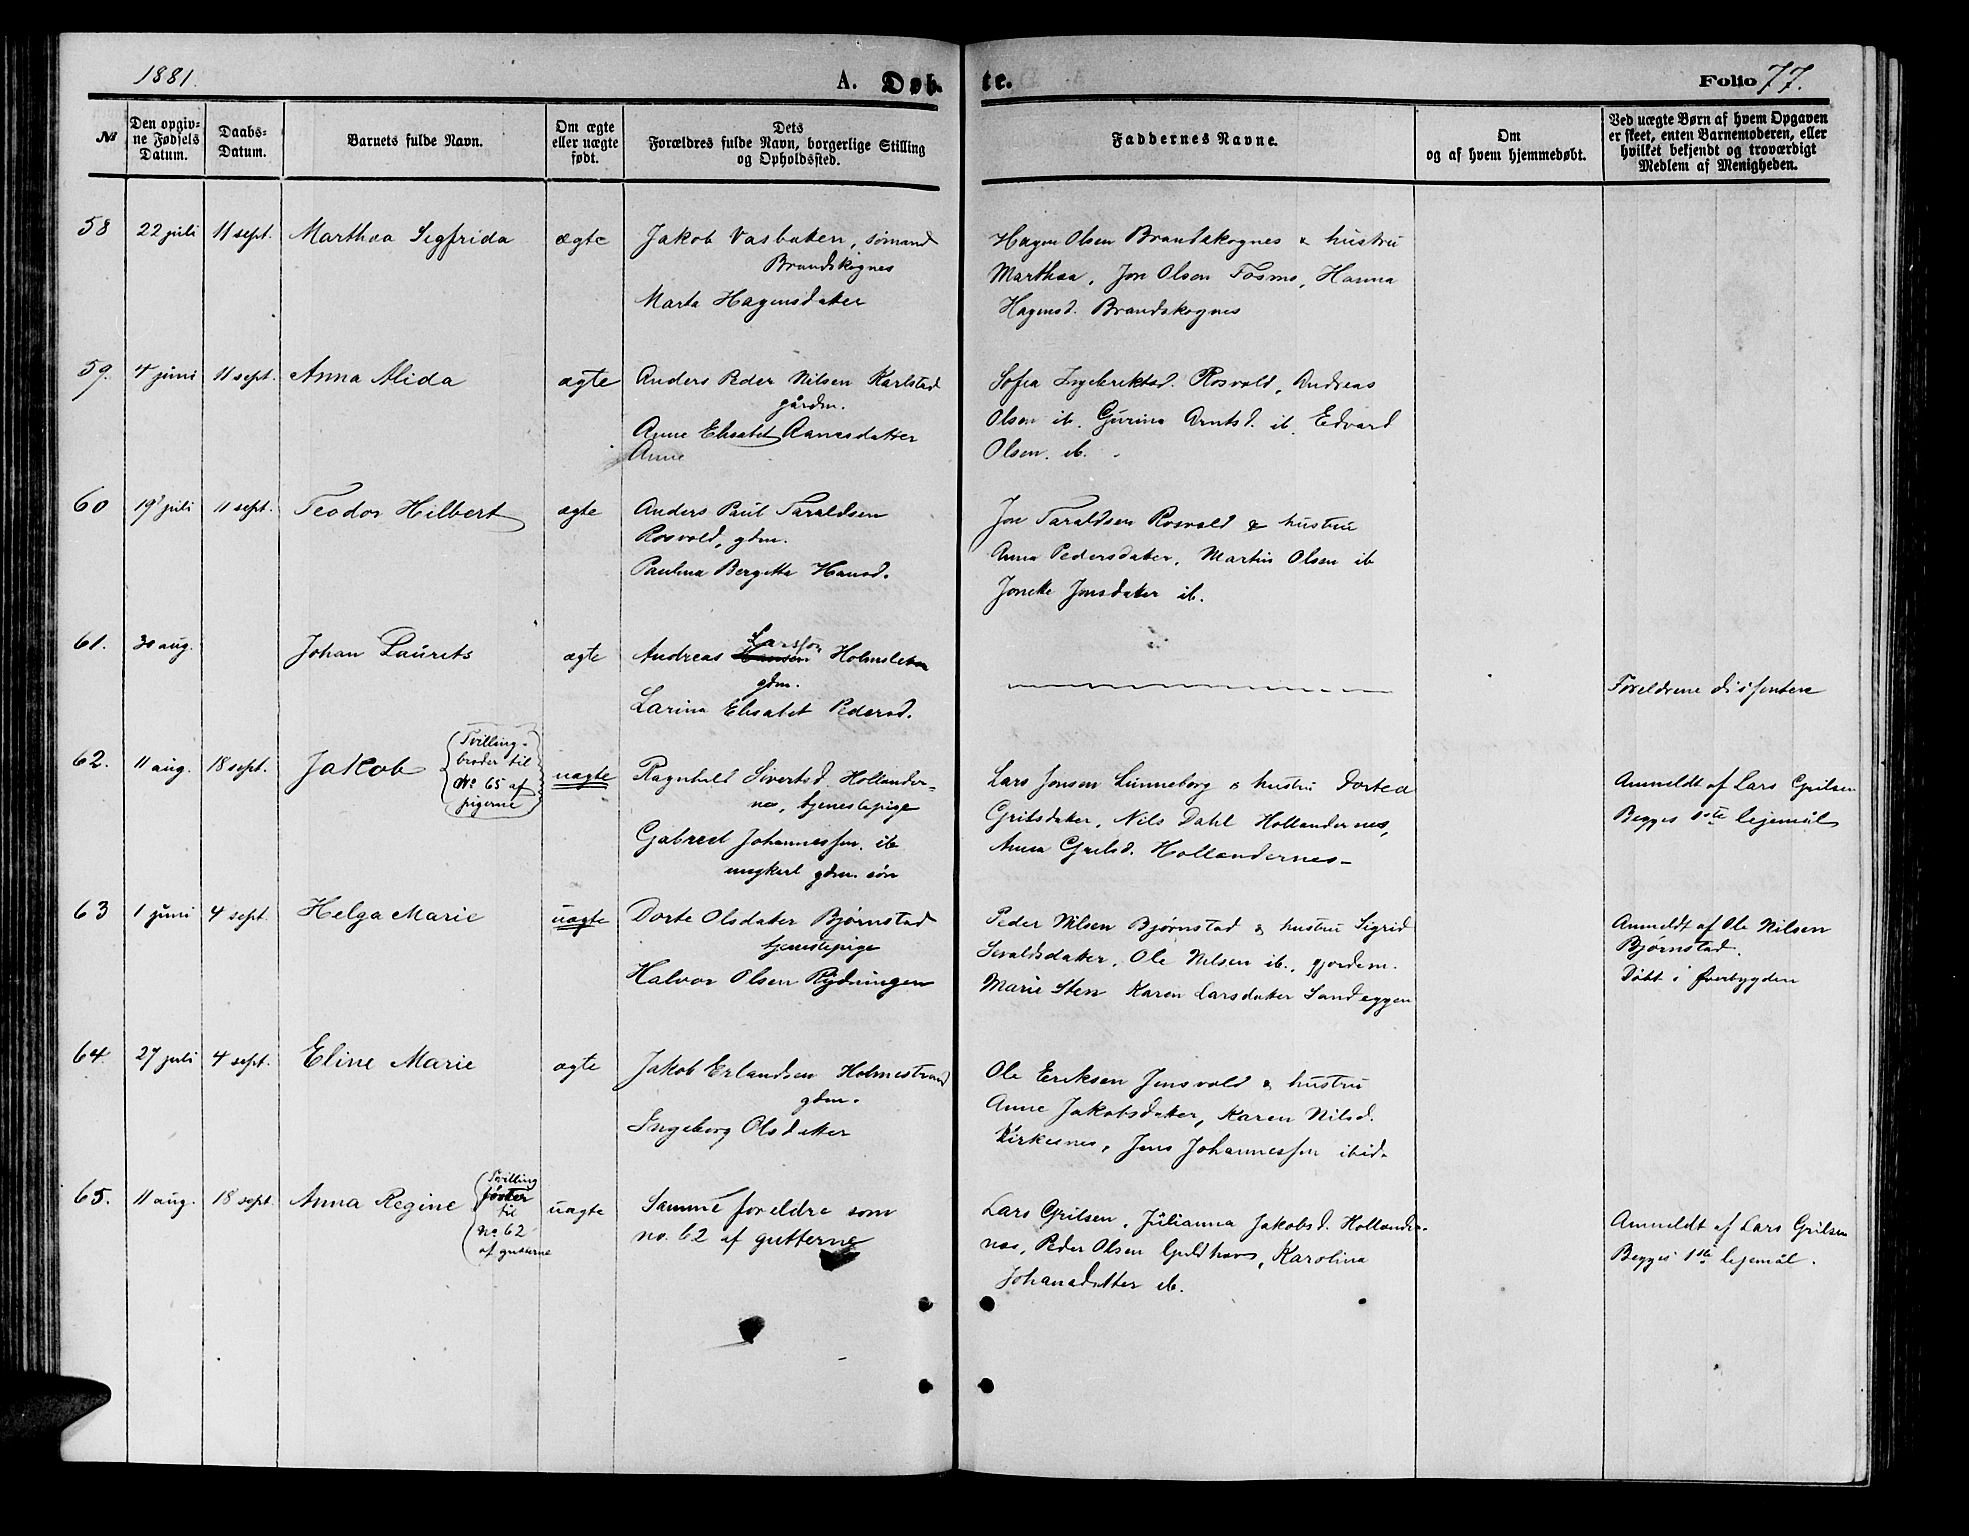 1881.
A. Døb-
te.
Folio 77.
№
Den opgiv-
ne Fødsels
Datum.
Daabs-
Datum.
Barnets fulde Navn.
Om ægte
eller uægte
født.
Dets
Forældres fulde Navn, borgerlige Stilling
og Opholdssted.
Faddernes Navne.
Om
og af hvem hjemmedøbt.
Ved uægte Børn af hvem Opgaven
er skeet, enten Barnemoderen, eller
hvilket bekjendt og troværdigt
Medlem af Menigheden.
58 22 juli 11 sept. Marthaa Sigfrida ægte Jakob Vasbaken, sømand
Brandskognes
Marta Hagensdater
Hagen Olsen Brandskognes & hustru
Marthaa, Jon Olsen Fosmo, Hanna
Hagensd. Brandskognes
59. 4 juni 11 sept. Anna Alida ægte Anders Peder Nilsen Karlstad
gårdm.
Anne Elisabet Aanesdatter
Anne
Sofia Ingebrektsd. Rosvold, Andreas
Olsen ib. Gurina Arntsd. ib. Edvard
Olsen. ib.
60 19 juli 11 sept. Teodor Hilbert ægte Anders Paul Taraldsen
Rosvold, gdm.
Paulina Bergitta Hansd.
Jon Taraldsen Rosvold & hustru
Anna Pedersdater, Martin Olsen ib
Joneke Jonsdater ib.
61. 30 aug. Johan Laurits ægte Andreas Hansen Larssøn Holmsleten
gdm.
Larina Elisabet Pedersd.
Foreldrene dissentere
62. 11 aug. 18 sept. Jakob
Tvilling-
broder til
No 65 af
pigerne
uægte Ragnhild Sivertsd. Hollander-
nes, tjenestepige
Gabriel Johannessen. ib
ungkarl gdm. søn
Lars Jonsen Lunneborg & hustru Dortea
Grilsdater, Nils Dahl Hollandernes,
Anna Grilsd. Hollandernes-
Anmeldt af Lars Grilsen
Begges 1ste lejemål
63 1 juni 4 sept. Helga Marie uægte Dorte Olsdater Bjørnstad
tjenestepige
Halvor Olsen Rydningen
Peder Nilsen Bjørnstad & hustru Sigrid
Sevaldsdater, Ole Nilsen ib., gjordem.
Marie Sten Karen Larsdater Sandeggen
Anmeldt af Ole Nilsen
Bjørnstad.
Døbt i Øverbygden
64. 27 juli 4 sept. Eline Marie ægte Jakob Erlandsen Holmestrand
gdm.
Ingeborg Olsdatter
Ole Eriksen Jensvold & hustru
Anne Jakobsdater, Karen Nilsd.
Kirkesnes, Jens Johannessen ibid.
65. 11 aug. 18 sept Anna Regine
Tvilling
søster
til
No. 62
af gutterne
uægte Samme foreldre som
no. 62 af gutterne
Lars Grilsen, Julianna Jakobsd. Hollander-
nes, Peder Olsen Guldhav, Karolina
Johansdatter ib.
Anmeldt af Lars Grilsen
Begges 1ste lejemål.